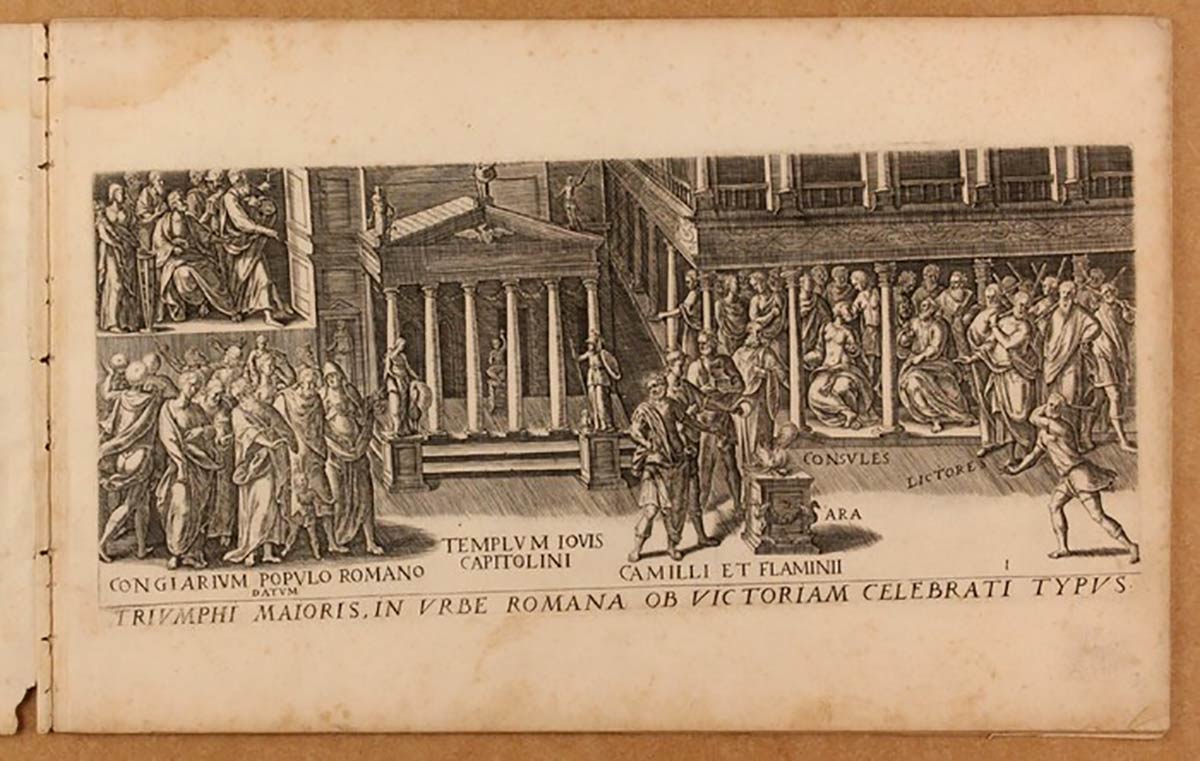 CONSVLES
LICTORES
ARA
TEMPLVM IOVIS
CAPITOLINI
CAMILLI ET FLAMINII
1
CONGIARIVM POPVLO ROMANO
DATVM
TRIVMPHI MAIORIS, IN VRBE ROMANA OB VICTORIAM CELEBRATI TYPVS.